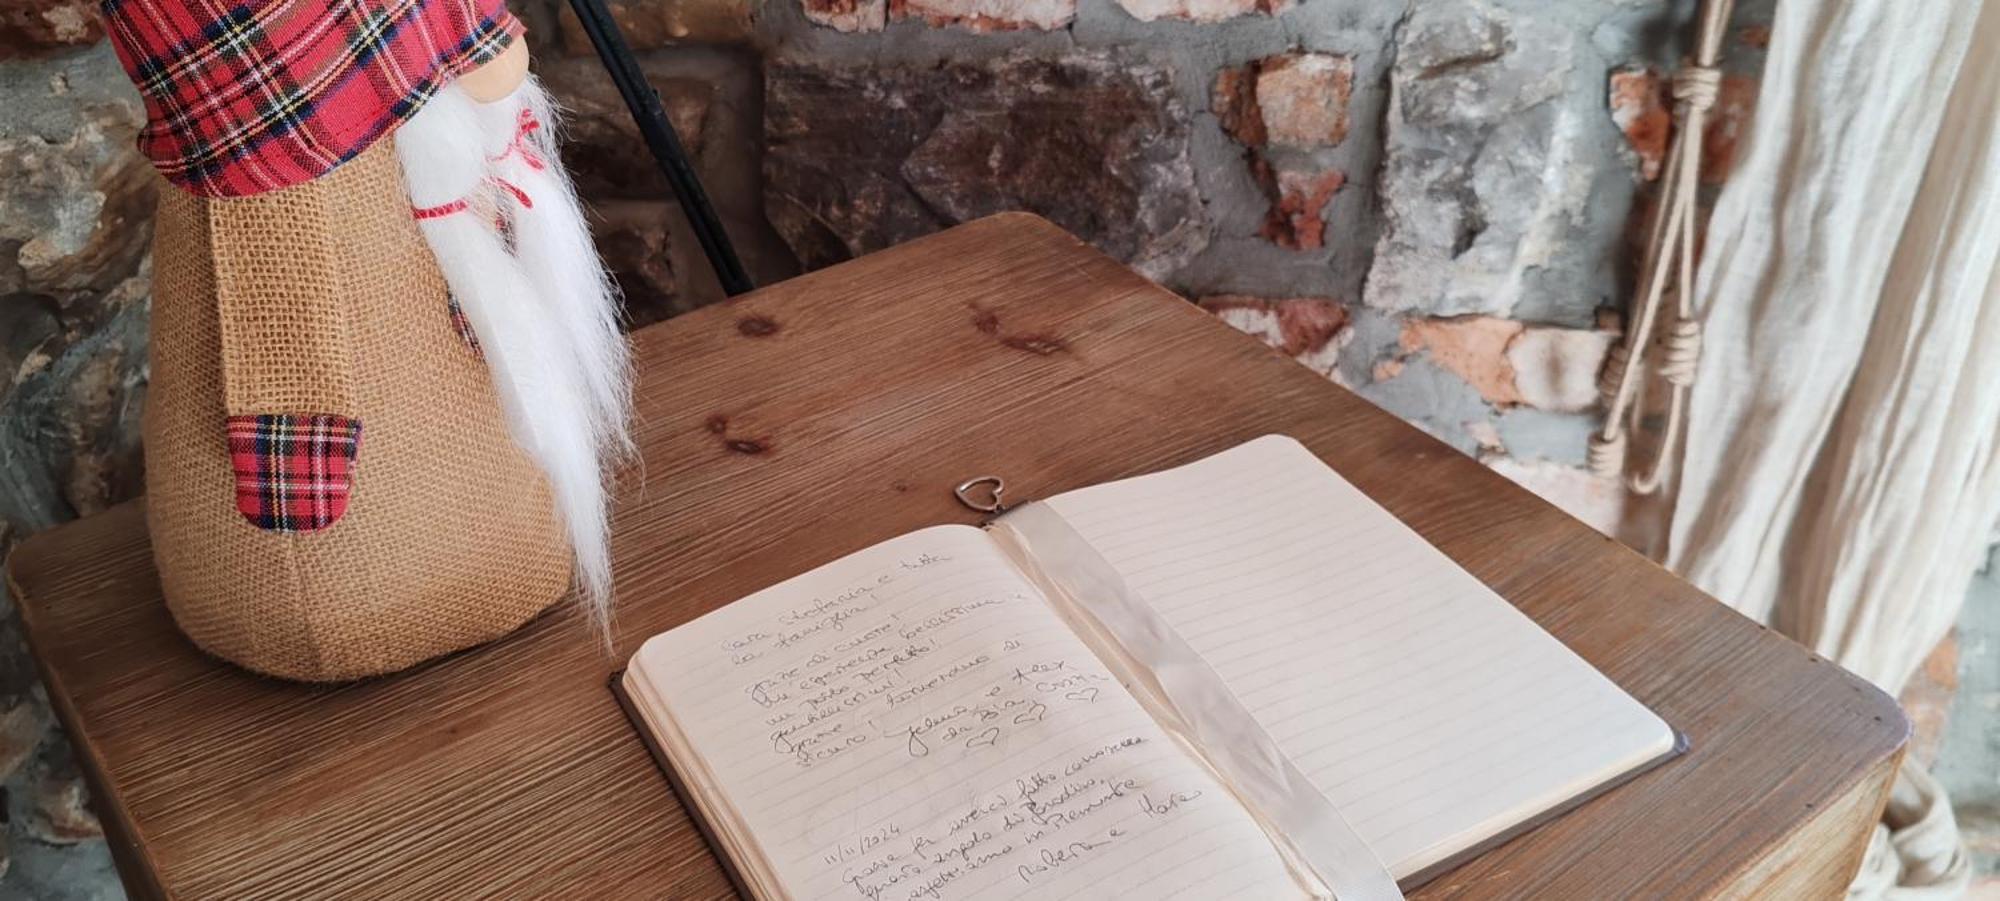 Cara Stefania e tutta
la famiglia!
grazie di cuore!
Un'esperienza bellissima e
un posto perfetto!
gentilissimi!
grazie! Torneremo di
sicuro! Jelena e Alex
da
11/11/2024
Grazie per averci fatto conoscere
questo angolo di Paradiso,
aspettiamo in Piemonte
Roberta e